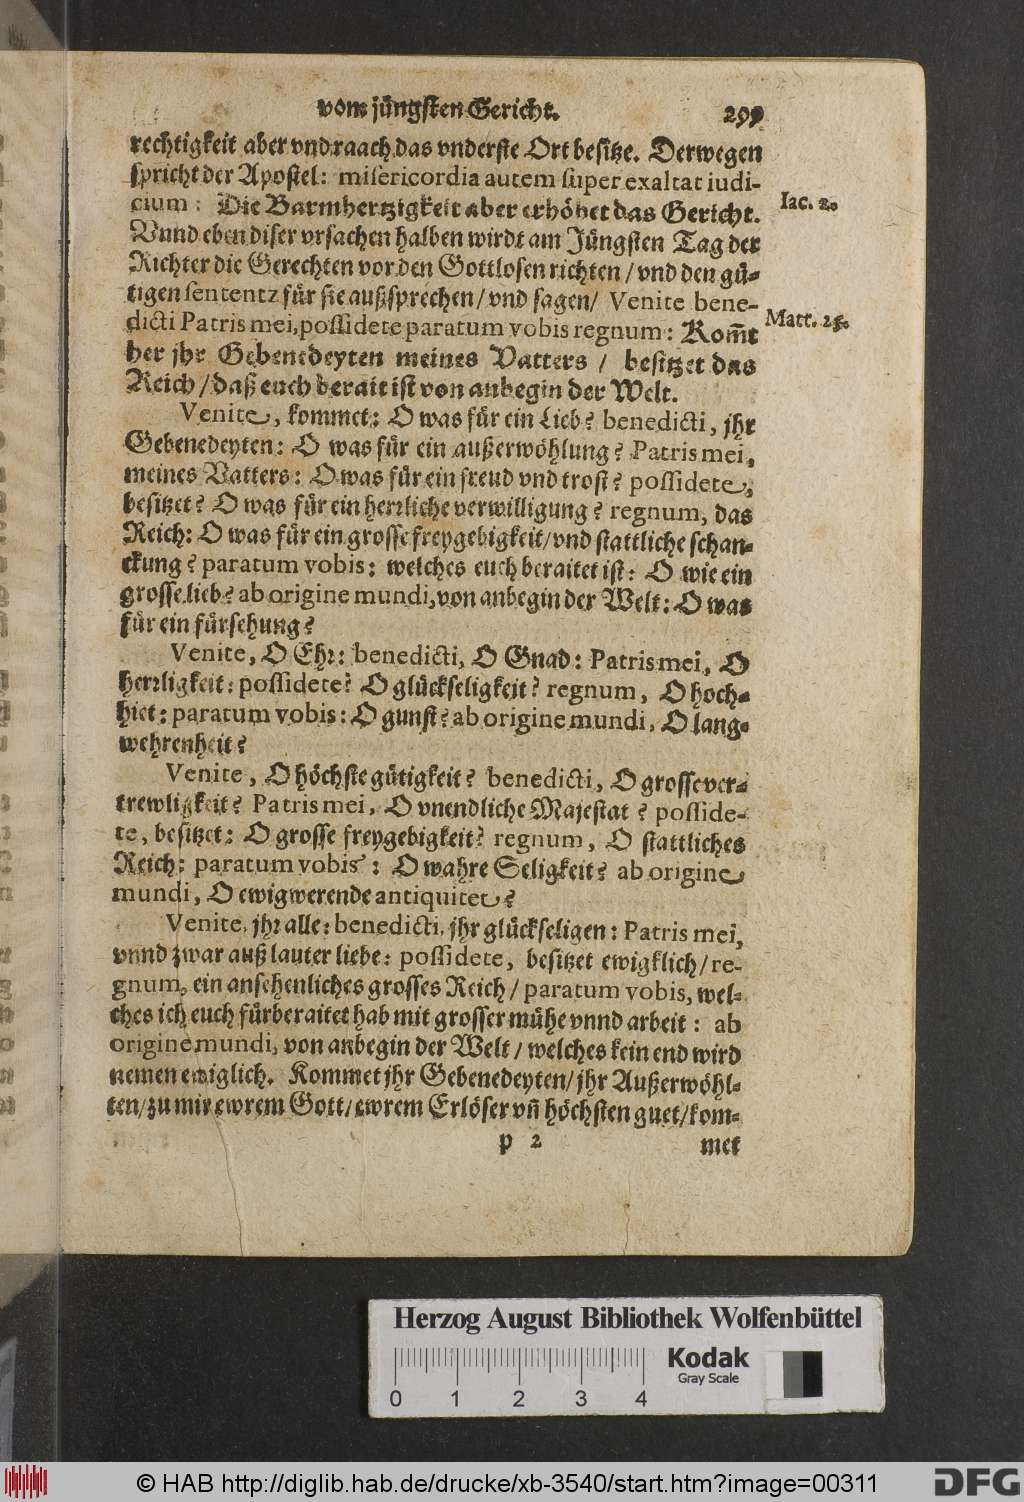 vom jüngsten Gericht. 299
rechtigkeit aber vnd raach das vnderste Ort besitze. Derwegen
spricht der Apostel: misericordia autem super exaltat iudi-
cium: Die Barmhertzigkeit aber erhöhet das Gericht.
Iac. 2.
Vnnd eben diser vrsachen halben wirdt am Jüngsten Tag der
Richter die Gerechten vor den Gottlosen richten/ vnd den gü-
tigen sententz für sie außsprechen/ vnd sagen/ Venite bene-
dicti Patris mei, possidete paratum vobis regnum: Kom̃t
Matt. 25.
her jhr Gebenedeyten meines Vatters / besitzet das
Reich/ daß euch berait ist von anbegin der Welt.
Venite, kommet: O was für ein Lieb? benedicti, jhr
Gebenedeyten: O was für ein außerwöhlung? Patris mei,
meines Vatters: O was für ein freud vnd trost? possidete,
besitzet? O was für ein herrliche verwilligung? regnum, das
Reich: O was für ein grosse freygebigkeit/ vnd stattliche schan-
ckung? paratum vobis: welches euch beraitet ist: O wie ein
grosse lieb? ab origine mundi, von anbegin der Welt: O was
für ein fürsehung?
Venite, O Ehr: benedicti, O Gnad: Patris mei, O
herrligkeit: possidete? O glückseligkeit? regnum, O hoch-
hiet: paratum vobis: O gunst? ab origine mundi, O lang-
wehrenheit?
Venite, O höchste gütigkeit? benedicti, O grosse ver-
trewligkeit? Patris mei, O vnendliche Majestat? posside-
te, besitzet: O grosse freygebigkeit? regnum, O stattliches
Reich: paratum vobis: O wahre Seligkeit? ab origine
mundi, O ewigwerende antiquitet?
Venite, jhr alle: benedicti, jhr glückseligen: Patris mei,
vnnd zwar auß lauter liebe: possidete, besitzet ewigklich/ re-
gnum, ein ansehenliches grosses Reich/ paratum vobis, wel-
ches ich euch fürberaitet hab mit grosser mühe vnnd arbeit: ab
origine mundi, von anbegin der Welt/ welches kein end wird
nemen ewiglich. Kommet jhr Gebenedeyten/ jhr Außerwöhl-
ten/ zu mir ewrem Gott/ ewrem Erlöser vñ höchsten guet/ kom-
p 2 met
Herzog August Bibliothek Wolfenbüttel
Kodak
Gray Scale
0 1 2 3 4
© HAB http://diglib.hab.de/drucke/xb-3540/start.htm?image=00311
DFG